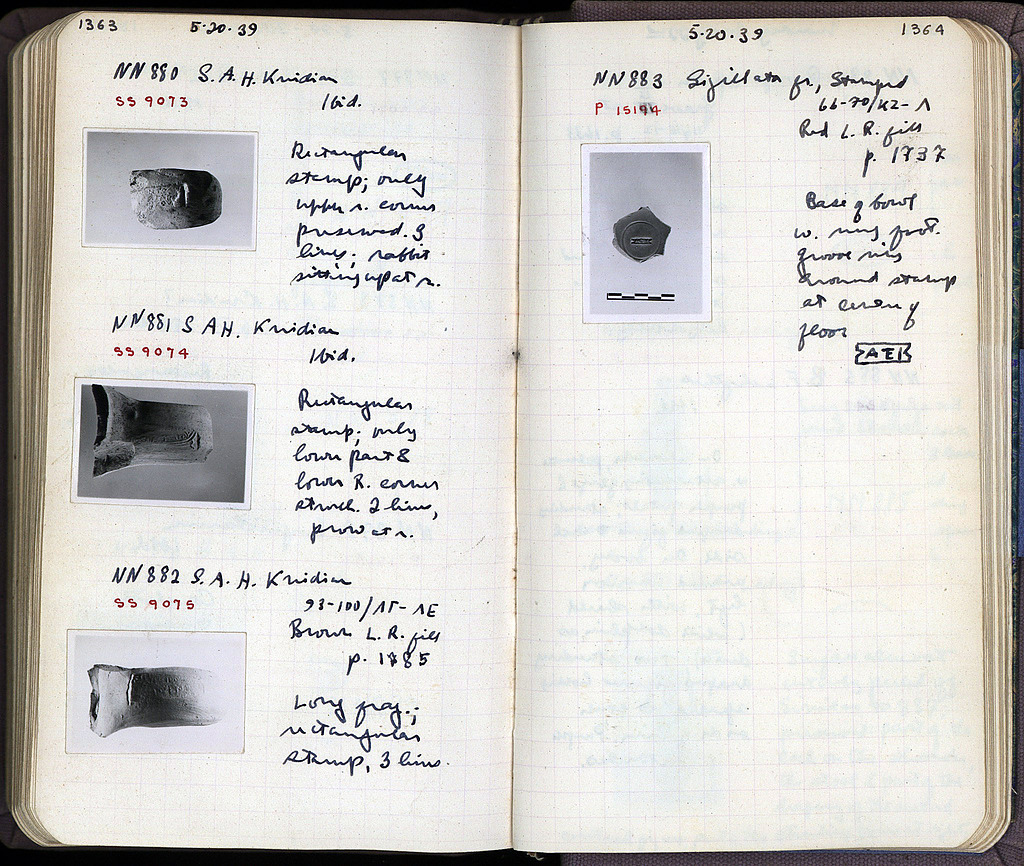 1363
5-20-39
NN 880 S. A. H. Knidian
SS 9073
Ibid.
Rectangular
stamp; only
upper r. corner
preserved. 3
lines; rabbit
sitting up at r.
NN 881 S A H. Knidian
SS 9074
Ibid.
Rectangular
stamp; only
lower part &
lower R. corner
struck. 2 lines,
prow at r.
NN 882 S. A. H. Knidian
SS 9075
93-100/ΛΓ-ΛΕ
Brown L. R. fill
p. 1785
Long frag.;
rectangular
stamp, 3 lines.
5-20-39
1364
NN 883 Sigillata fr., Stamped
P 15194
66-70/ΚΖ-Λ
Red L. R. fill
p. 1737
Base of bowl
w. ring foot.
groove ring
around stamp
at center of
floor
ΑΕΙ